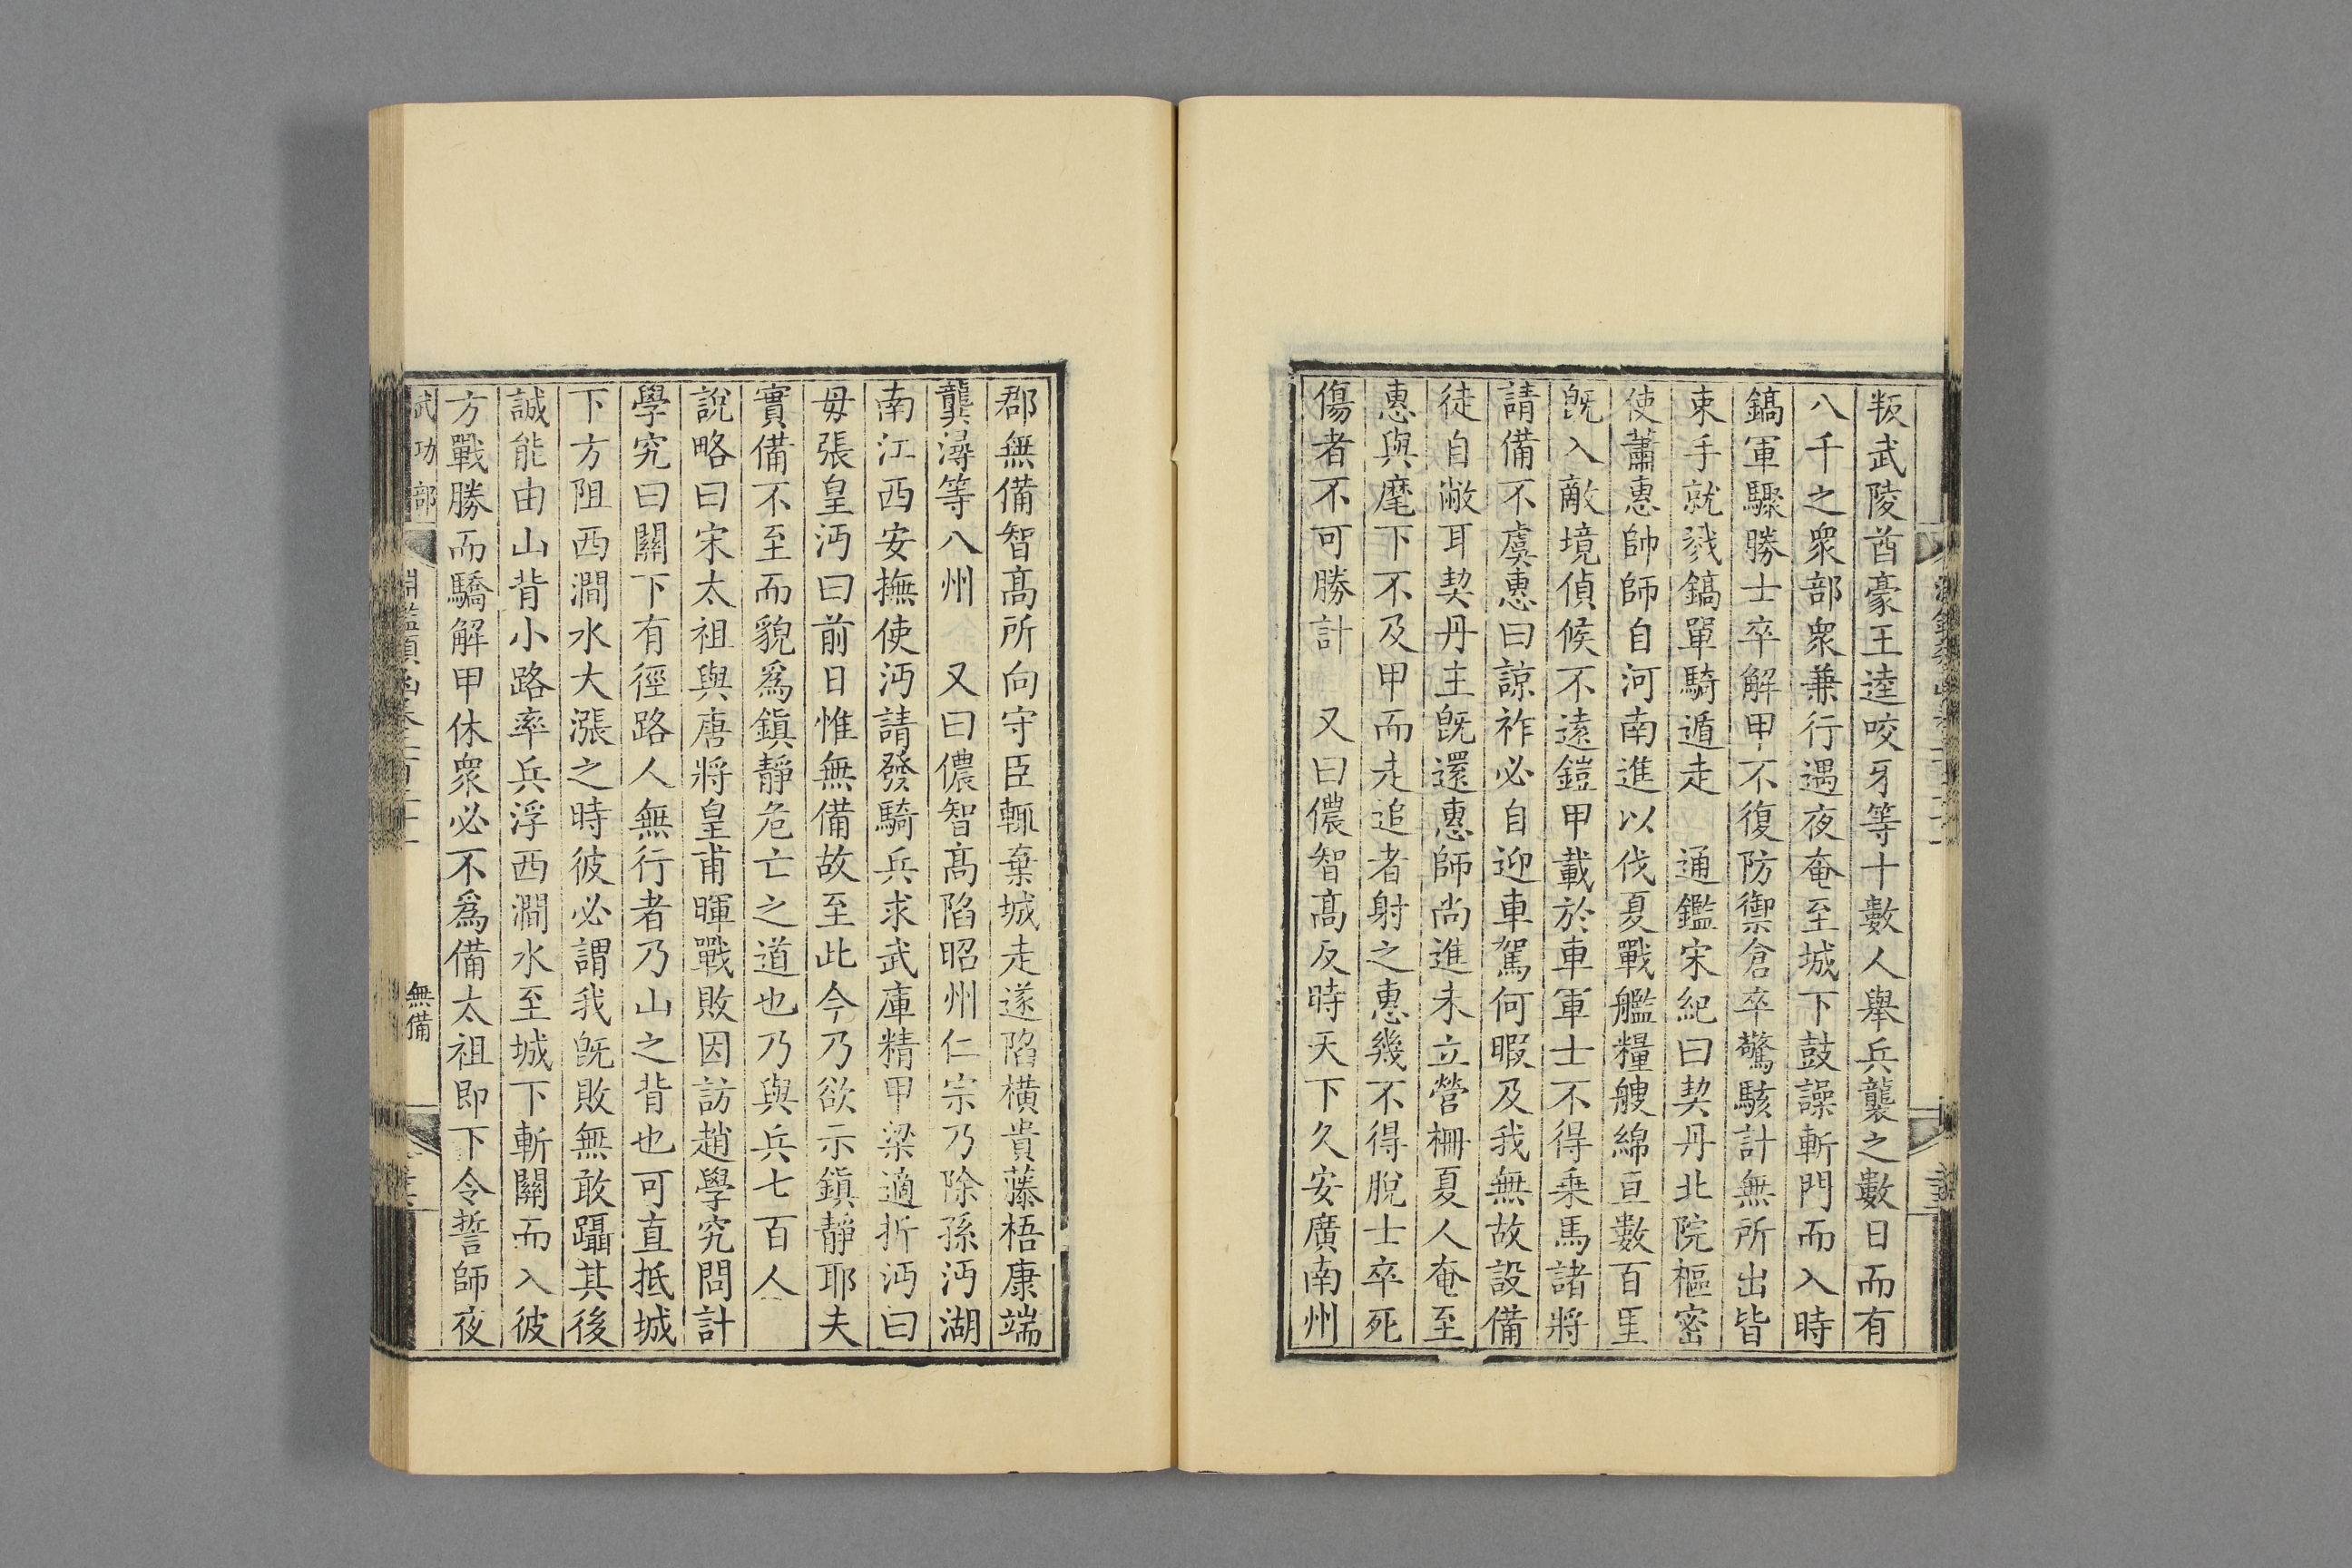 叛武陵酋豪王逵咬牙等十數人舉兵襲之數日而有
八千之衆部衆兼行遇夜奄至城下鼓譟斬門而入時
鎬軍驟勝士卒解甲不復防禦倉卒驚駭計無所出皆
束手就戮鎬單騎遁走　通鑑宋紀曰契丹北院樞密
使蕭惠帥師自河南進以伐夏戰艦糧艘綿亘數百里
旣入敵境偵候不遠鎧甲載於車軍士不得乗馬諸將
請備不虞惠曰諒祚必自迎車駕何暇及我無故設備
徒自敝耳契丹主旣還惠師尚進未立營柵夏人奄至
惠與麾下不及甲而走追者射之惠幾不得脫士卒死
傷者不可勝計　又曰儂智高反時天下久安廣南州
郡無備智高所向守臣輒棄城走遂陷橫貴藤梧康端
龔潯等八州　又曰儂智高陷昭州仁宗乃除孫沔湖
南江西安撫使沔請發騎兵求武庫精甲梁適折沔曰
毋張皇沔曰前日惟無備故至此今乃欲示鎭靜耶夫
實備不至而貌爲鎭靜危亡之道也乃與兵七百人
說略曰宋太祖與唐將皇甫暉戰敗因訪趙學究問計
學究曰關下有徑路人無行者乃山之背也可直抵城
下方阻西澗水大漲之時彼必謂我旣敗無敢躡其後
誠能由山背小路率兵浮西澗水至城下斬關而入彼
方戰勝而驕解甲休衆必不爲備太祖即下令誓師夜
武功部
淵鑑類函卷二百
無備